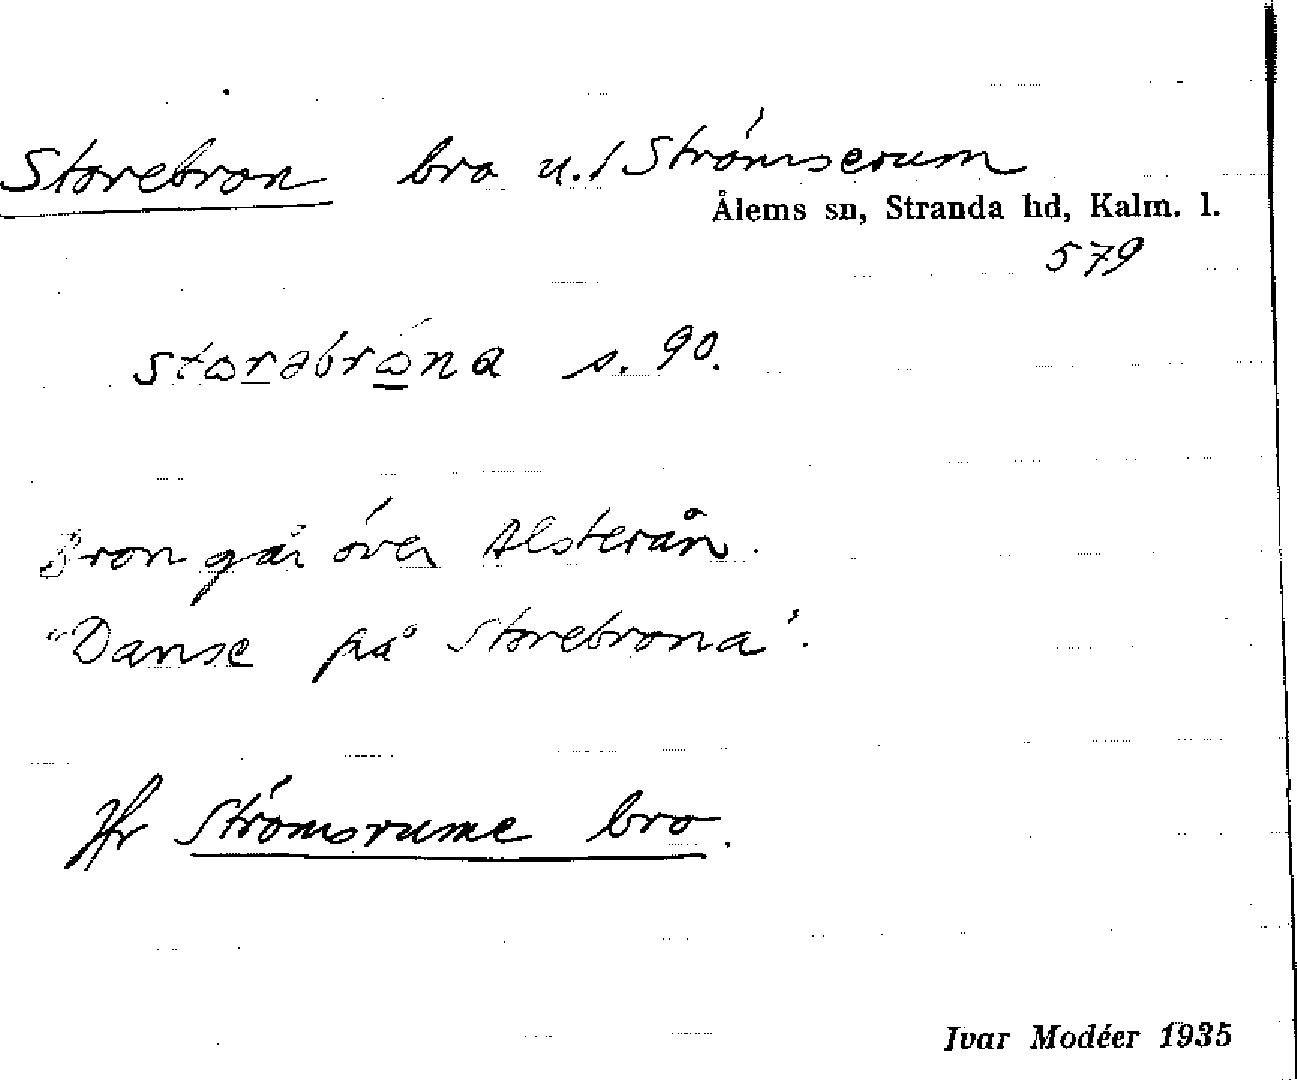 Storebron bro u. / Strömserum
Ålems sn, Stranda hd, Kalm. l.
579
storəbróna s. 90.
Bron går över Alsterån.
"Danse på Storebrona".
Jfr Strömsrume bro.
Ivar Modéer 1935